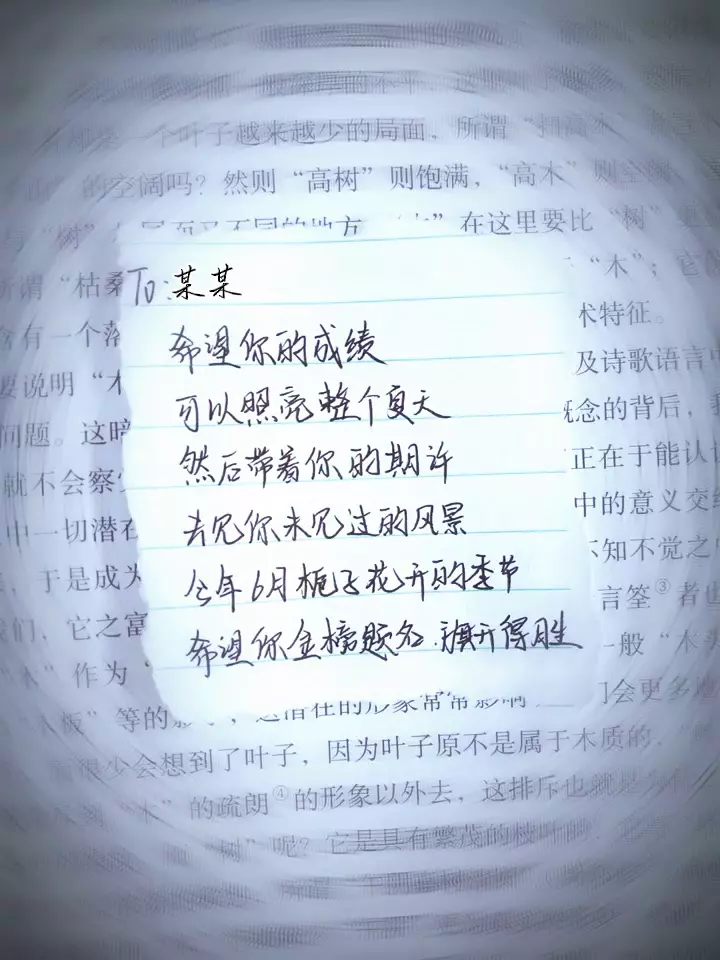 般深厚的不平
一个叶子越来越少的局面，所谓“扫高木
的空阔吗？然则“高树”则饱满，“高木”则空阔
与“树”
不同的地方
”在这里要比“树”
所谓“枯桑
“木”；它
To：某某
含有一个落
术特征。
希望你的成绩
要说明“木
及诗歌语言中
可以照亮整个夏天
问题。这暗
概念的背后，我
然后带着你的期许
就不会察
正在于能认识
去见你未见过的风景
中一切潜在
中的意义交织
不知不觉之中
今年6月栀子花开的季节
，于是成为
言筌③者也
希望你金榜题名.旗开得胜
我们，它之富
一般“木头
木”作为“
们会更多地
木板”等的影子，这潜在的形象常常影响
很少会想到了叶子，因为叶子原不是属于木质的，
“木”的疏朗④的形象以外去，这排斥也就是为什
树”呢？它是具有繁茂的枝叶的